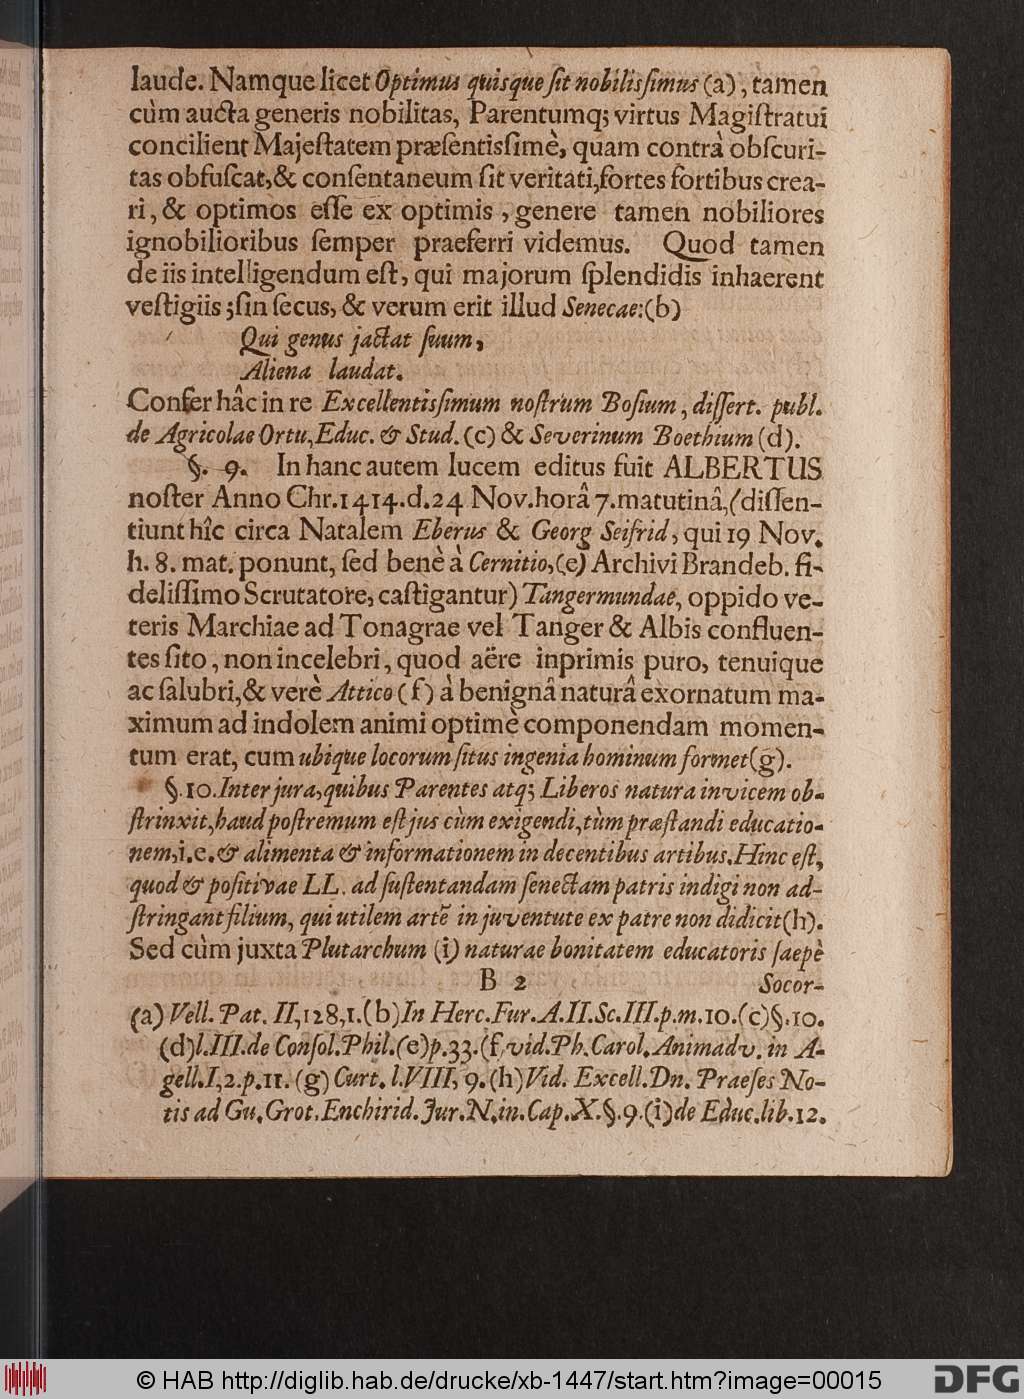 laude. Namque licet Optimus quisque ſit nobilisſimus (a), tamen
cùm aucta generis nobilitas, Parentumq; virtus Magiſtratui
concilient Majeſtatem præſentisſimè, quam contrà obſcuri-
tas obfuſcat,& conſentaneum ſit veritati,fortes fortibus crea-
ri, & optimos eſſe ex optimis, genere tamen nobiliores
ignobilioribus ſemper praeferri videmus. Quod tamen
de iis intelligendum eſt, qui majorum ſplendidis inhaerent
veſtigiis ;ſin ſecus, & verum erit illud Senecae:(b)
Qui genus jactat ſuum,
Aliena laudat.
Confer hâc in re Excellentisſimum noſtrum Boſium, diſſert. publ.
de Agricolae Ortu,Educ. & Stud.(c) & Severinum Boethium (d).
§. 9. In hanc autem lucem editus fuit ALBERTUS
noſter Anno Chr.1414.d.24 Nov.horâ 7.matutinâ,(diſſen-
tiunt hîc circa Natalem Eberus & Georg Seifrid, qui 19 Nov.
h. 8. mat. ponunt, ſed benè à Cernitio,(e) Archivi Brandeb. fi-
deliſſimo Scrutatore, caſtigantur) Tangermundae, oppido ve-
teris Marchiae ad Tonagrae vel Tanger & Albis confluen-
tes ſito, non incelebri, quod aëre inprimis puro, tenuique
ac ſalubri,& verè Attico (f) à benignâ naturâ exornatum ma-
ximum ad indolem animi optimè componendam momen-
tum erat, cum ubique locorum ſitus ingenia hominum formet(g).
§.10.Inter jura,quibus Parentes atq; Liberos natura invicem ob-
ſtrinxit,haud poſtremum eſt jus cùm exigendi,tùm præſtandi educatio-
nem,i.e.& alimenta & informationem in decentibus artibus.Hinc eſt,
quod & poſitivae LL. ad ſuſtentandam ſenectam patris indigi non ad-
ſtringant filium, qui utilem artẽ in juventute ex patre non didicit(h).
Sed cùm juxta Plutarchum (i) naturae bonitatem educatoris ſaepè
B 2 Socor-
(a) Vell. Pat. II,128,1.(b)In Herc.Fur.A.II.Sc.III.p.m.10.(c)§.10.
(d)l.III.de Conſol.Phil.(e)p.33.(f)vid.Ph.Carol.Animadv. in A-
gell.I,2.p.11. (g) Curt. l.VIII, 9.(h)Vid. Excell.Dn. Praeſes No-
tis ad Gu.Grot.Enchirid.Jur.N.in.Cap.X.§.9.(i)de Educ.lib.12.
© HAB http://diglib.hab.de/drucke/xb-1447/start.htm?image=00015
DFG